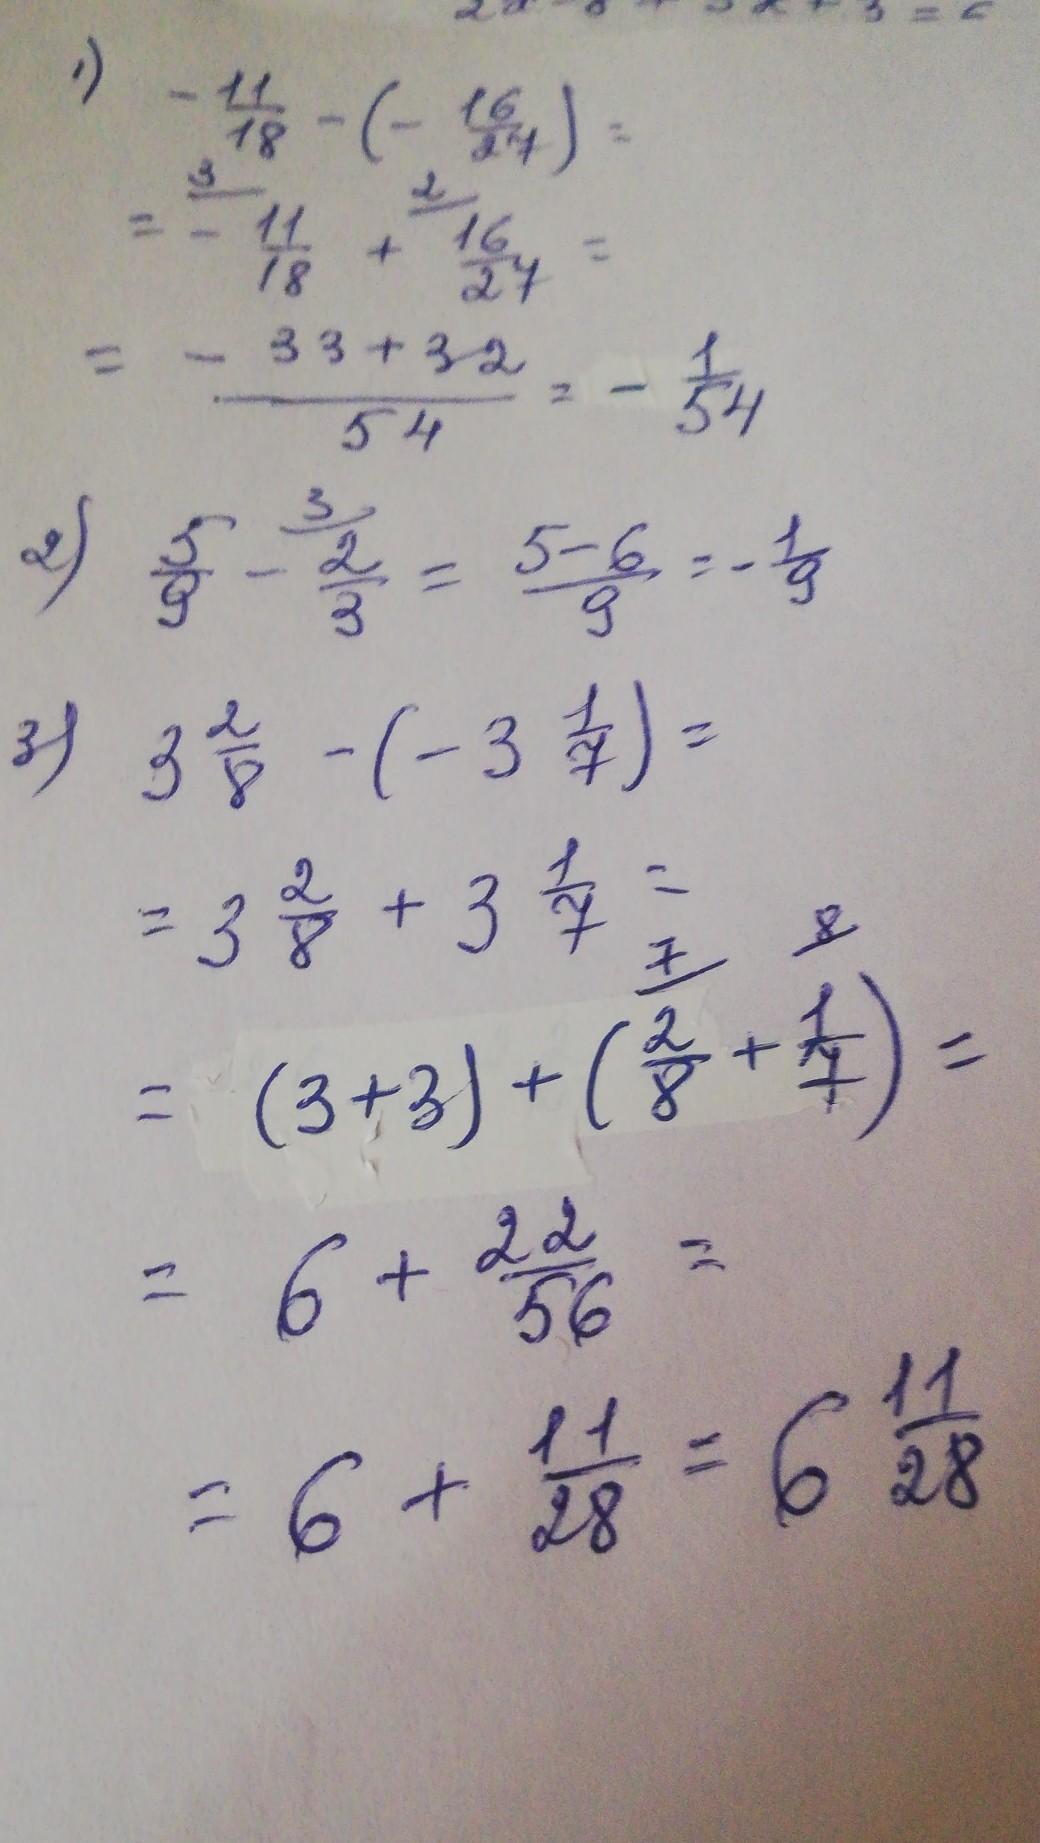 1) - 11/18 - (- 16/27) =
= - 11/18 ^3 + 16/27 ^2 =
= (- 33 + 32)/54 = - 1/54
2) 5/9 - 2/3 ^3 = (5 - 6)/9 = - 1/9
3) 3 2/8 - (- 3 1/7) =
= 3 2/8 + 3 1/7 =
= (3 + 3) + (2/8 ^7 + 1/7 ^8) =
= 6 + 22/56 =
= 6 + 11/28 = 6 11/28